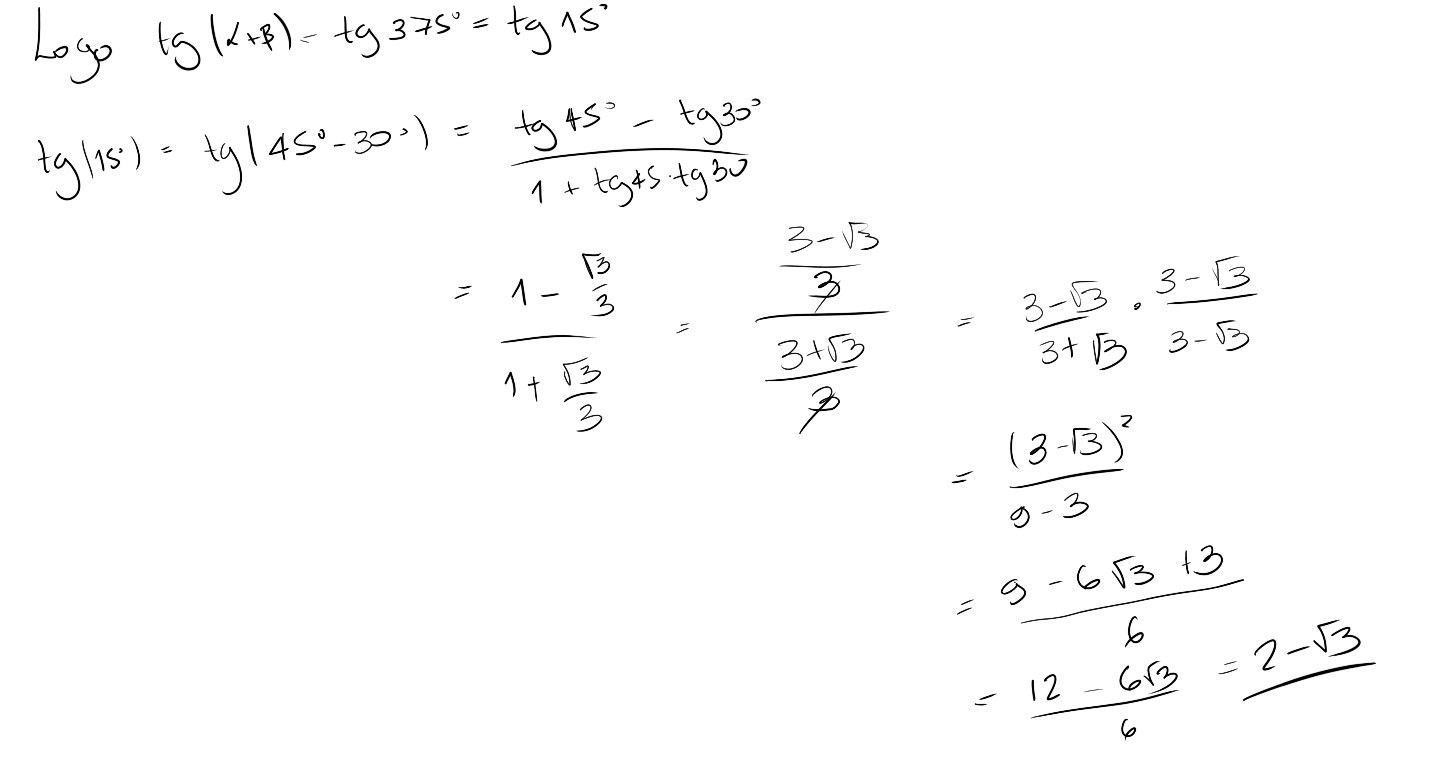 Logo tg (α+β) = tg 375° = tg 15°
tg (15°) = tg (45° - 30°) = \frac{tg 45° - tg 30°}{1 + tg 45 · tg 30}
= \frac{1 - \frac{√3}{3}}{1 + \frac{√3}{3}} = \frac{\frac{3 - √3}{3}}{\frac{3 + √3}{3}} = \frac{3 - √3}{3 + √3} · \frac{3 - √3}{3 - √3}
= \frac{(3 - √3)²}{9 - 3}
= \frac{9 - 6√3 + 3}{6}
= \frac{12 - 6√3}{6} = 2 - √3